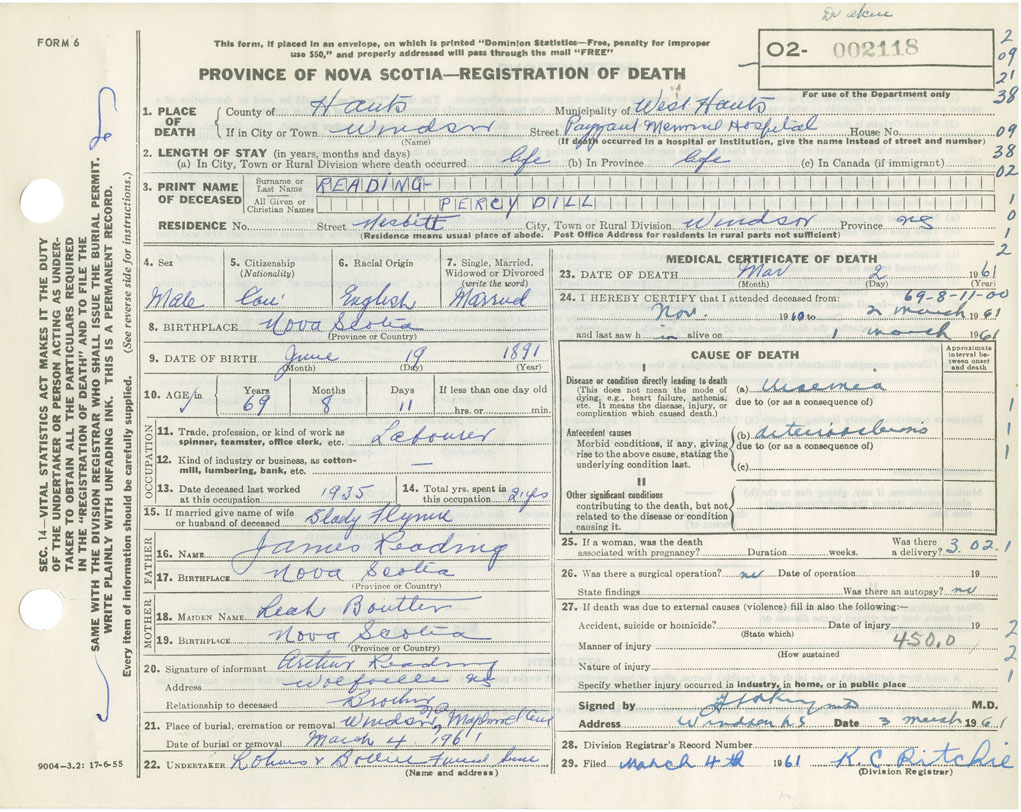 Dr aken
FORM 6
This form, if placed in an envelope, on which is printed "Dominion Statistics—Free, penalty for improper
use $50," and properly addressed will pass through the mail "FREE"
O2- 002118
For use of the Department only
PROVINCE OF NOVA SCOTIA—REGISTRATION OF DEATH
2
09
21
38
09
38
02
1
0
1
2
1. PLACE OF DEATH
County of Hants Municipality of West Hants
If in City or Town Windsor Street Payzant Memorial Hospital House No.
(Name) (If death occurred in a hospital or institution, give the name instead of street and number)
2. LENGTH OF STAY (in years, months and days)
(a) In City, Town or Rural Division where death occurred life (b) In Province life (c) In Canada (if immigrant)
3. PRINT NAME OF DECEASED
Surname or Last Name READING
All Given or Christian Names PERCY DILL
RESIDENCE No. Street Nesbitt City, Town or Rural Division Windsor Province NS
(Residence means usual place of abode. Post Office Address for residents in rural parts not sufficient)
4. Sex Male
5. Citizenship (Nationality) Can
6. Racial Origin English
7. Single, Married, Widowed or Divorced (write the word) Married
8. BIRTHPLACE Nova Scotia
(Province or Country)
9. DATE OF BIRTH June 19 1891
(Month) (Day) (Year)
10. AGE in Years 69 Months 8 Days 11 If less than one day old hrs. or min.
OCCUPATION
11. Trade, profession, or kind of work as spinner, teamster, office clerk, etc. Labourer
12. Kind of industry or business, as cotton-mill, lumbering, bank, etc. —
13. Date deceased last worked at this occupation 1935 14. Total yrs. spent in this occupation 21 yrs
15. If married give name of wife or husband of deceased Flynn
FATHER
16. NAME James Reading
17. BIRTHPLACE Nova Scotia
(Province or Country)
MOTHER
18. MAIDEN NAME Leah
19. BIRTHPLACE Nova Scotia
(Province or Country)
20. Signature of informant Arthur Reading
Address Wolfville NS
Relationship to deceased Brother
21. Place of burial, cremation or removal Windsor, NS
Date of burial or removal March 4 1961
22. UNDERTAKER Funeral
(Name and address)
MEDICAL CERTIFICATE OF DEATH
23. DATE OF DEATH Mar 2 1961
(Month) (Day) (Year)
69-8-11-00
24. I HEREBY CERTIFY that I attended deceased from:
Nov. 1960 to 2 march 1961
and last saw h im alive on 1 march 1961
CAUSE OF DEATH
Approximate interval between onset and death
Disease or condition directly leading to death
(This does not mean the mode of dying, e.g., heart failure, asthenia, etc. It means the disease, injury, or complication which caused death.)
(a) Uraemia
due to (or as a consequence of)
Antecedent causes
Morbid conditions, if any, giving rise to the above cause, stating the underlying condition last.
(b) arteriosclerosis
due to (or as a consequence of)
(c)
II
Other significant conditions contributing to the death, but not related to the disease or condition causing it.
1
1
1
25. If a woman, was the death associated with pregnancy? Duration weeks. Was there a delivery? 3.02.1
26. Was there a surgical operation? no Date of operation 19
State findings Was there an autopsy? no
27. If death was due to external causes (violence) fill in also the following:—
Accident, suicide or homicide? Date of injury 19
(State which)
450.0
Manner of injury
(How sustained)
Nature of injury
Specify whether injury occurred in industry, in home, or in public place
2
2
1
Signed by M.D.
Address Windsor N.S. Date 3 march 1961
28. Division Registrar's Record Number
29. Filed march 4th 1961 K. C. Ritchie
(Division Registrar)
SEC. 14—VITAL STATISTICS ACT MAKES IT THE DUTY
OF THE UNDERTAKER OR PERSON ACTING AS UNDER-
TAKER TO OBTAIN ALL THE PARTICULARS REQUIRED
IN THE "REGISTRATION OF DEATH" AND TO FILE THE
SAME WITH THE DIVISION REGISTRAR WHO SHALL ISSUE THE BURIAL PERMIT.
WRITE PLAINLY WITH UNFADING INK. THIS IS A PERMANENT RECORD.
Every item of information should be carefully supplied. (See reverse side for instructions.)
9004—3.2: 17-6-55